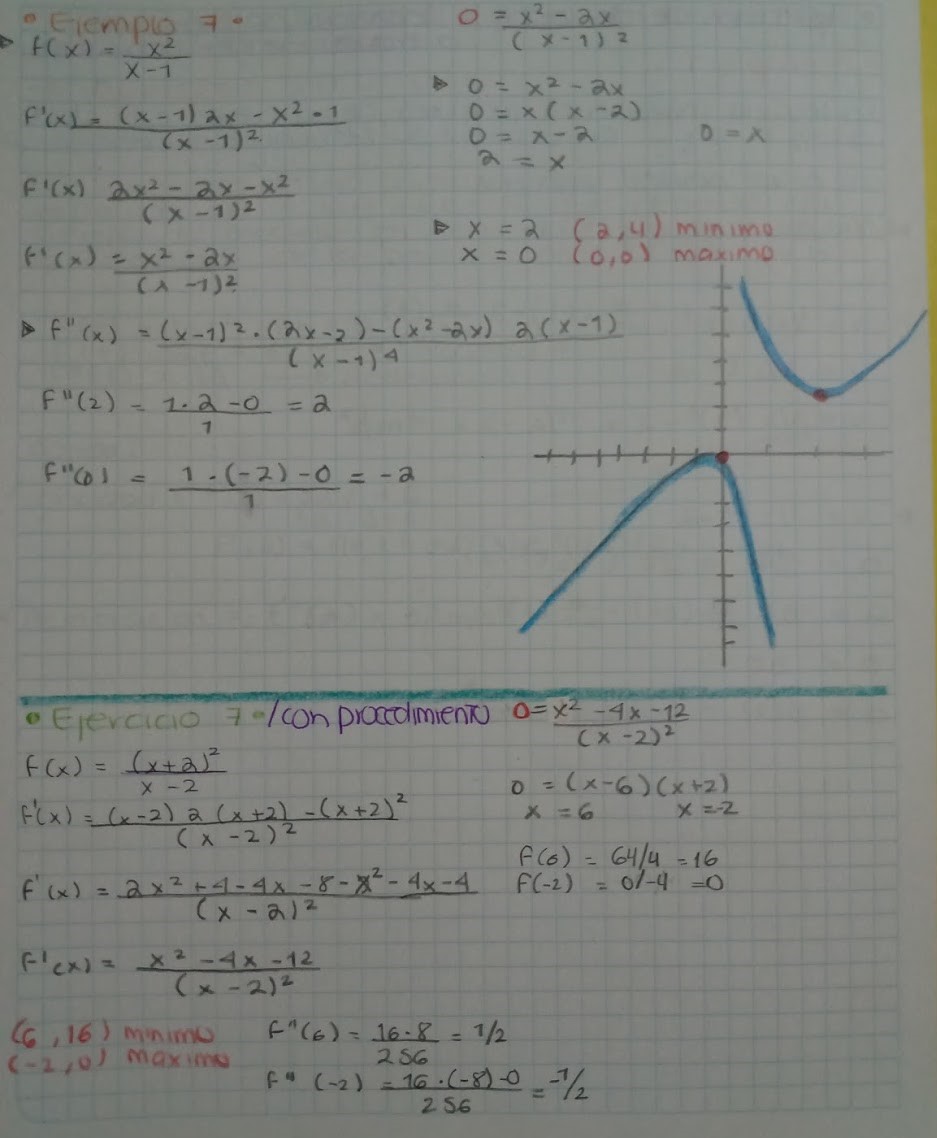 • Ejemplo 7 •
▷ f(x) = x² / x-1
f'(x) = (x-1) 2x - x² • 1 / (x-1)²
f'(x) 2x² - 2x - x² / (x-1)²
f'(x) = x² - 2x / (x-1)²
▷ f''(x) = (x-1)² • (2x-2) - (x²-2x) 2(x-1) / (x-1)⁴
f''(2) = 1•2-0 / 1 = 2
f''(0) = 1•(-2)-0 / 1 = -2
0 = x² - 2x / (x-1)²
▷ 0 = x² - 2x
0 = x(x-2)
0 = x-2 0 = x
2 = x
▷ x = 2 (2,4) minimo
x = 0 (0,0) maximo
• Ejercicio 7 • /con procedimiento
f(x) = (x+2)² / x-2
f'(x) = (x-2) 2 (x+2) - (x+2)² / (x-2)²
f'(x) = 2x² + 4 - 4x - 8 - x² - 4x - 4 / (x-2)²
f'(x) = x² - 4x - 12 / (x-2)²
0 = x² - 4x - 12 / (x-2)²
0 = (x-6)(x+2)
x = 6 x = -2
f(6) = 64/4 = 16
f(-2) = 0/-4 = 0
(6,16) minimo
(-2,0) maximo
f''(6) = 16•8 / 256 = 1/2
f'' (-2) = 16•(-8)-0 / 256 = -1/2